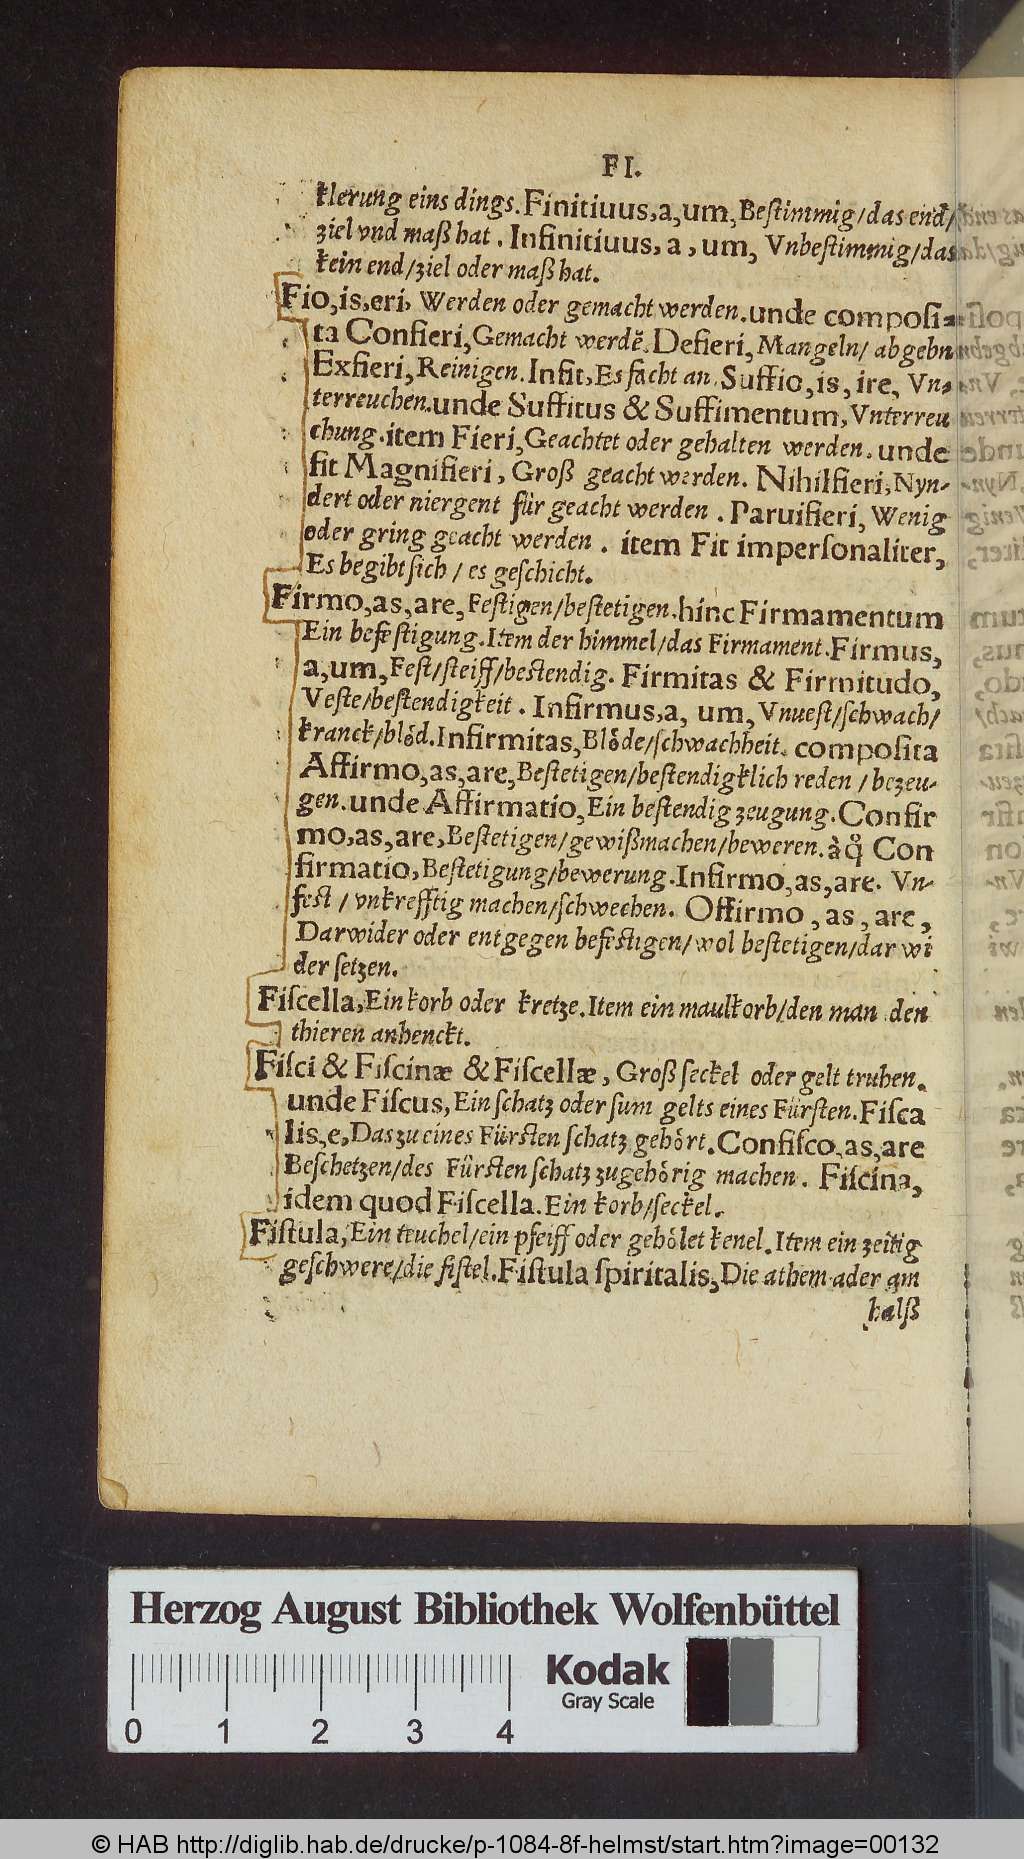 FI.
klerung eins dings. Finitiuus, a, um, Bestimmig/das end/
ziel vnd maß hat. Infinitiuus, a, um, Vnbestimmig/das
kein end/ziel oder maß hat.
Fio, is, eri, Werden oder gemacht werden. unde composi-
ta Confieri, Gemacht werdē. Defieri, Mangeln/ abgebn
Exfieri, Reinigen. Infit, Es facht an. Suffio, is, ire, Vn-
terreuchen. unde Suffitus & Suffimentum, Vnterreu
chung. item Fieri, Geachtet oder gehalten werden. unde
fit Magnifieri, Groß geacht werden. Nihilfieri, Nyn-
dert oder niergent für geacht werden. Paruifieri, Wenig
oder gring geacht werden. item Fit impersonaliter,
Es begibt sich / es geschicht.
Firmo, as, are, Festigen/bestetigen. hinc Firmamentum
Ein befestigung. Item der himmel/das Firmament. Firmus,
a, um, Fest/steiff/bestendig. Firmitas & Firmitudo,
Veste/bestendigkeit. Infirmus, a, um, Vnuest/schwach/
kranck/blöd. Infirmitas, Blöde/schwachheit. composita
Affirmo, as, are, Bestetigen/bestendigklich reden / bezeu-
gen. unde Affirmatio, Ein bestendig zeugung. Confir
mo, as, are, Bestetigen/gewißmachen/beweren. à ꝙ Con
firmatio, Bestetigung/bewerung. Infirmo, as, are. Vn-
fest / vnkrefftig machen/schwechen. Offirmo, as, are,
Darwider oder entgegen befestigen/wol bestetigen/dar wi
der setzen.
Fiscella, Ein korb oder kretze. Item ein maulkorb/den man den
thieren anhenckt.
Fisci & Fiscinæ & Fiscellæ, Groß seckel oder gelt truhen.
unde Fiscus, Ein schatz oder sum gelts eines Fürsten. Fisca
lis, e, Das zu eines Fürsten schatz gehört. Confisco, as, are
Beschetzen/des Fürsten schatz zugehörig machen. Fiscina,
idem quod Fiscella. Ein korb/seckel.
Fistula, Ein teuchel/ein pfeiff oder gehölet kenel. Item ein zeitig
geschwere/die fistel. Fistula spiritalis, Die athem ader am
halß
Herzog August Bibliothek Wolfenbüttel
Kodak
Gray Scale
0 1 2 3 4
© HAB http://diglib.hab.de/drucke/p-1084-8f-helmst/start.htm?image=00132